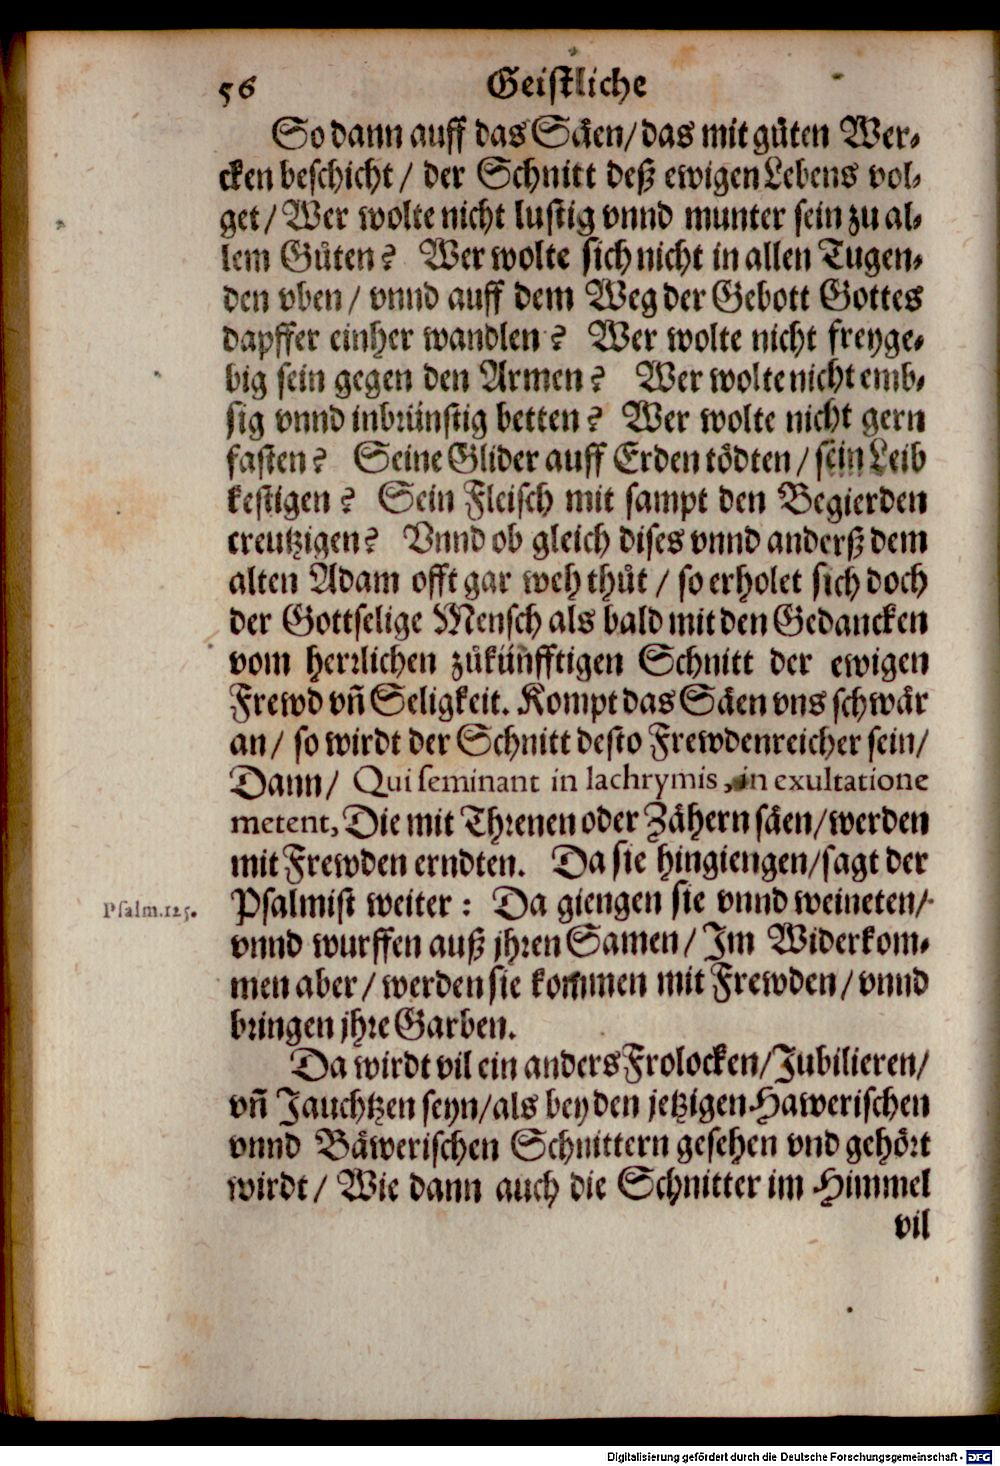 56 Geistliche
So dann auff das Säen/ das mit gůten Wer⸗
cken beschicht / der Schnitt deß ewigen Lebens vol⸗
get / Wer wolte nicht lustig vnnd munter sein zu al⸗
lem Gůten? Wer wolte sich nicht in allen Tugen⸗
den vben / vnnd auff dem Weg der Gebott Gottes
dapffer einher wandlen? Wer wolte nicht freyge⸗
big sein gegen den Armen? Wer wolte nicht emb⸗
sig vnnd inbrünstig betten? Wer wolte nicht gern
fasten? Seine Glider auff Erden tödten / sein Leib
kestigen? Sein Fleisch mit sampt den Begierden
creutzigen? Vnnd ob gleich dises vnnd anderß dem
alten Adam offt gar weh thůt / so erholet sich doch
der Gottselige Mensch als bald mit den Gedancken
vom herrlichen zůkünfftigen Schnitt der ewigen
Frewd vñ Seligkeit. Kompt das Säen vns schwär
an / so wirdt der Schnitt desto Frewdenreicher sein/
Dann / Qui seminant in lachrymis, in exultatione
metent, Die mit Threnen oder Zähern säen / werden
mit Frewden erndten. Da sie hingiengen / sagt der
Psalm. 125. Psalmist weiter: Da giengen sie vnnd weineten/
vnnd wurffen auß jhren Samen / Im Widerkom⸗
men aber / werden sie kommen mit Frewden / vnnd
bringen jhre Garben.
Da wirdt vil ein anders Frolocken / Jubilieren/
vñ Jauchtzen seyn / als bey den jetzigen Hawerischen
vnnd Bäwerischen Schnittern gesehen vnd gehört
wirdt / Wie dann auch die Schnitter im Himmel
vil
Digitalisierung gefördert durch die Deutsche Forschungsgemeinschaft - DFG